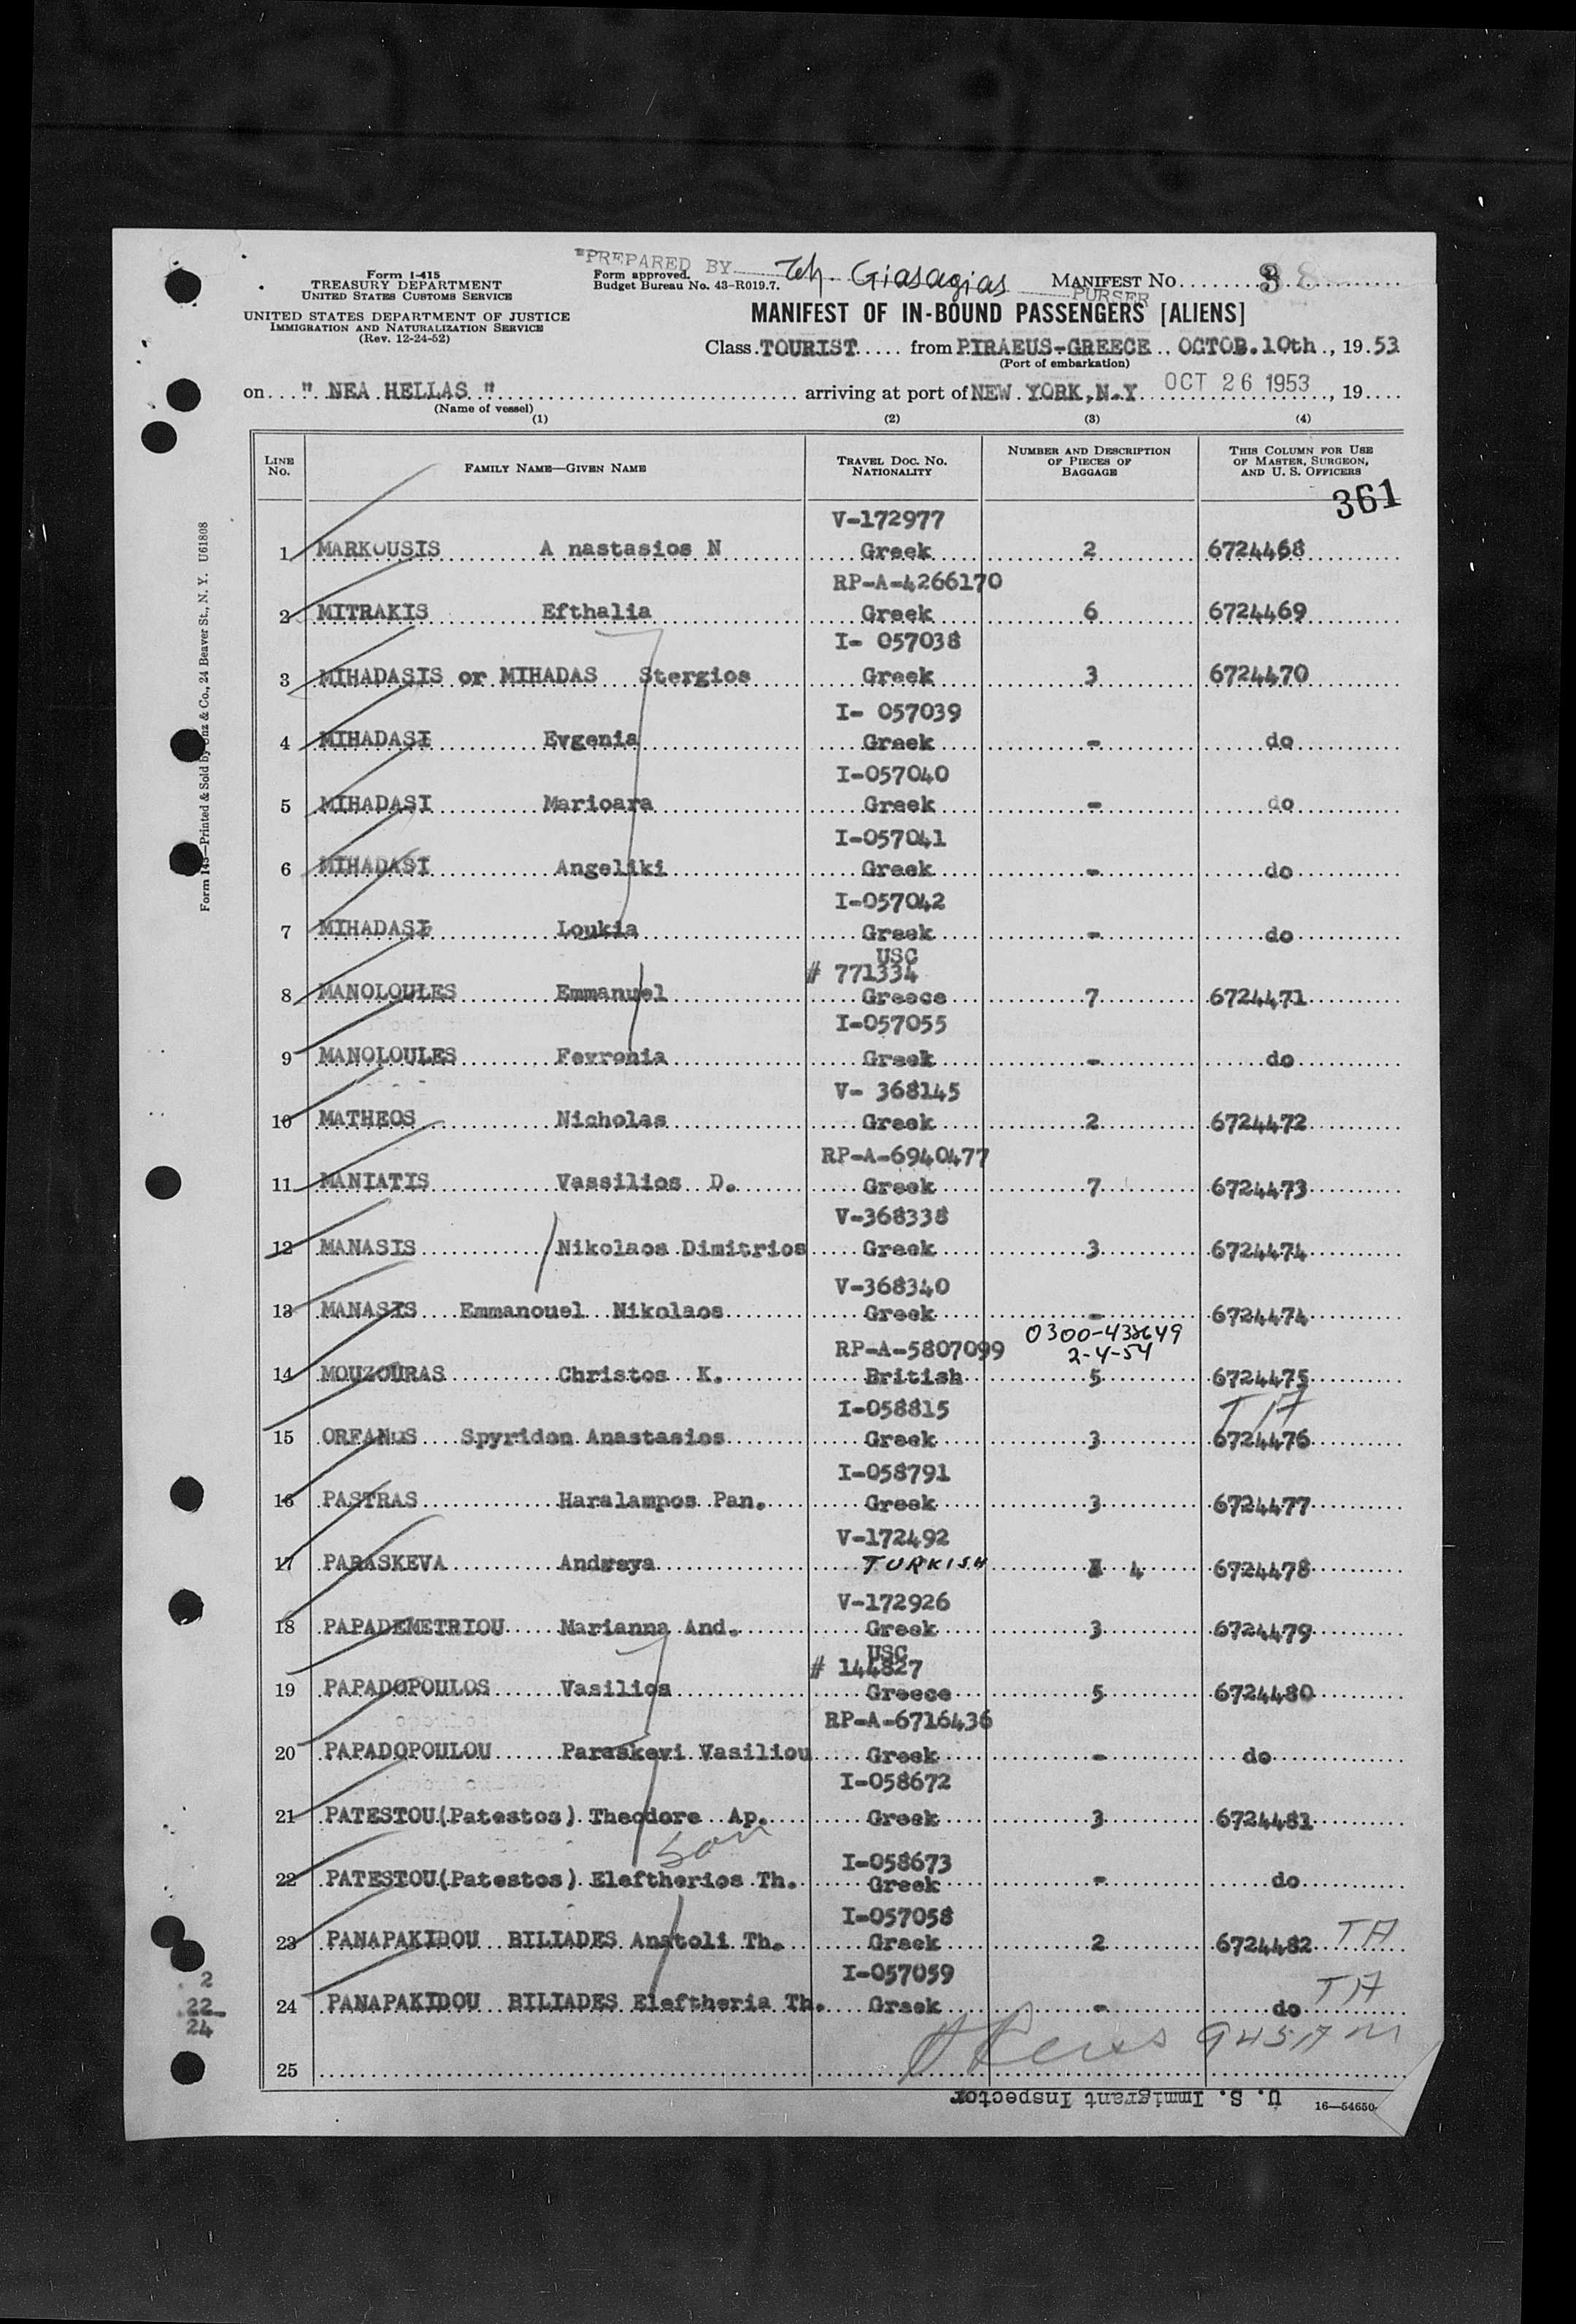 Form I-415
TREASURY DEPARTMENT
UNITED STATES CUSTOMS SERVICE
UNITED STATES DEPARTMENT OF JUSTICE
IMMIGRATION AND NATURALIZATION SERVICE
(Rev. 12-24-52)
PREPARED BY Th. Giasagias
PURSER
Form approved.
Budget Bureau No. 43-R019.7.
MANIFEST No. 3
MANIFEST OF IN-BOUND PASSENGERS [ALIENS]
Class TOURIST from PIRAEUS-GREECE OCTOB.10th, 19 53
(Port of embarkation)
on " NEA HELLAS " arriving at port of NEW YORK,N.Y OCT 26 1953, 19
(Name of vessel)
(1) (2) (3) (4)
LINE No. FAMILY NAME—GIVEN NAME TRAVEL DOC. NO. NATIONALITY NUMBER AND DESCRIPTION OF PIECES OF BAGGAGE THIS COLUMN FOR USE OF MASTER, SURGEON, AND U. S. OFFICERS
361
V-172977
1 MARKOUSIS A nastasios N Greek 2 6724468
RP-A-4266170
2 MITRAKIS Efthalia Greek 6 6724469
I- 057038
3 MIHADASIS or MIHADAS Stergios Greek 3 6724470
I- 057039
4 MIHADASI Evgenia Greek - do
I-057040
5 MIHADASI Marioara Greek - do
I-057041
6 MIHADASI Angeliki Greek - do
I-057042
7 MIHADASI Loukia Greek - do
USC
# 771334
8 MANOLOULES Emmanuel Greece 7 6724471
I-057055
9 MANOLOULES Fevronia Greek - do
V- 368145
10 MATHEOS Nicholas Greek 2 6724472
RP-A-6940477
11 MANIATIS Vassilios D. Greek 7 6724473
V-368338
12 MANASIS Nikolaos Dimitrios Greek 3 6724474
V-368340
13 MANASIS Emmanouel Nikolaos Greek - 6724474
0300-438649
RP-A-5807099 2-4-54
14 MOUZOURAS Christos K. British 5 6724475
I-058815 TA
15 ORFANOS Spyridon Anastasios Greek 3 6724476
I-058791
16 PASTRAS Haralampos Pan. Greek 3 6724477
V-172492
17 PARASKEVA Andreya TURKISH 4 6724478
V-172926
18 PAPADEMETRIOU Marianna And. Greek 3 6724479
USC
# 144827
19 PAPADOPOULOS Vasilios Greece 5 6724480
RP-A-6716436
20 PAPADOPOULOU Paraskevi Vasiliou Greek - do
I-058672
21 PATESTOU(Patestos) Theodore Ap. Greek 3 6724481
son
I-058673
22 PATESTOU(Patestos) Eleftherios Th. Greek - do
I-057058
23 PANAPAKIDOU BILIADES Anatoli Th. Greek 2 6724482 TA
I-057059
24 PANAPAKIDOU BILIADES Eleftheria Th. Greek - do TA
2
22
24
945AM
25
U. S. Immigrant Inspector
16—54650
Printed & Sold by Unz & Co., 24 Beaver St., N. Y. U61808